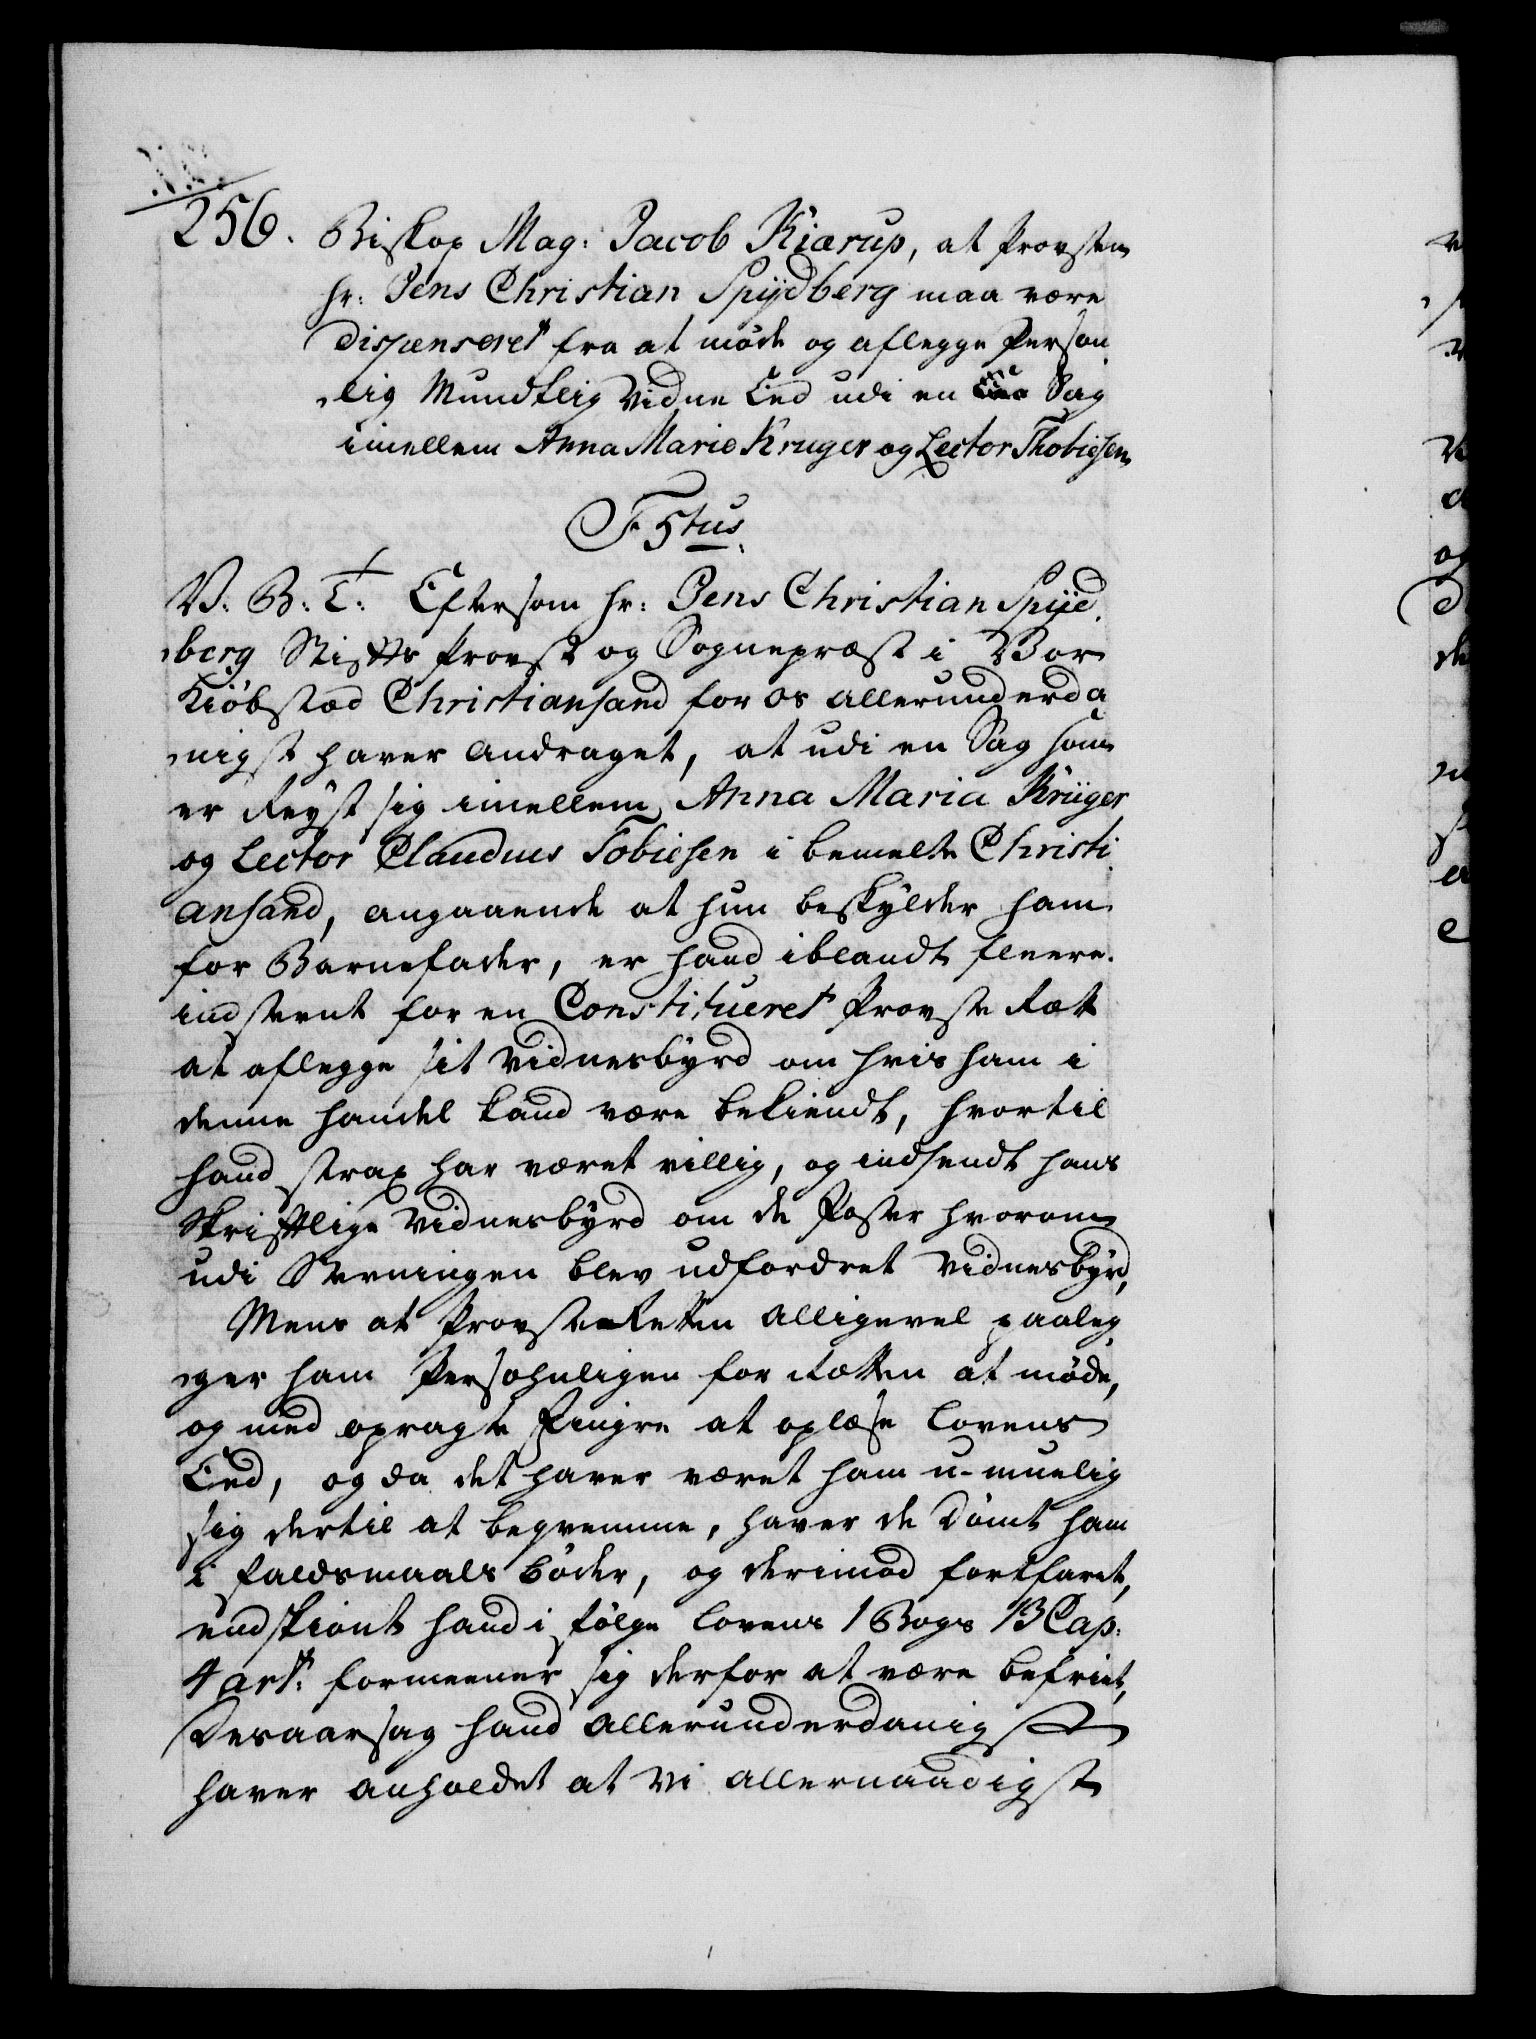 256. Biskop Mag: Jacob Kiærup, at Provsten
hr: Jens Christian Spydberg maa være
dispenseret fra at møde og aflegge Person
lig Mundtlig Vidne Eed udi en Sag
imellem Anna Marie Kruger og Lector Thobiesen
F 5tus.
V: B: T: Eftersom hr: Jens Christian Spyd
berg Stifts Provst og Sognepræst i Vor
Kiøbstad Christiansand for os allerunderda
nigst haver andraget, at udi en Sag som
er Reyst sig imellem Anna Maria Krüger
og Lector Claudius Tobiesen i bemelte Christi
ansand, angaaende at hun beskylder ham
for Barnefader, er hand iblandt fleere
indstevnt for en Constitueret Provste Rætt
at aflegge sit Vidnesbyrd om hvis ham i
denne handel kand være bekiendt, hvortil
hand strax har været villig, og indsendt hans
Skriftlige Vidnesbyrd om de Poster hvorom
udi Stevningen blev udfordret Vidnesbyrd,
Mens at Provste-Retten alligevel paaleg
ger ham Persohnligen for Rætten at møde,
og med opragte Fingre at oplæse Lovens
Eed, og da det haver været ham u-muelig
sig dertil at beqvemme, haver de dømt ham
i Faldsmaals bøder, og derimod fortfaret,
endskiønt hand i følge Lovens 1 Bogs 13 Cap:
4 art: formeener sig derfor at være befriet,
Desaarsag hand allerunderdanigst
haver anholdet at Vi allernaadigst